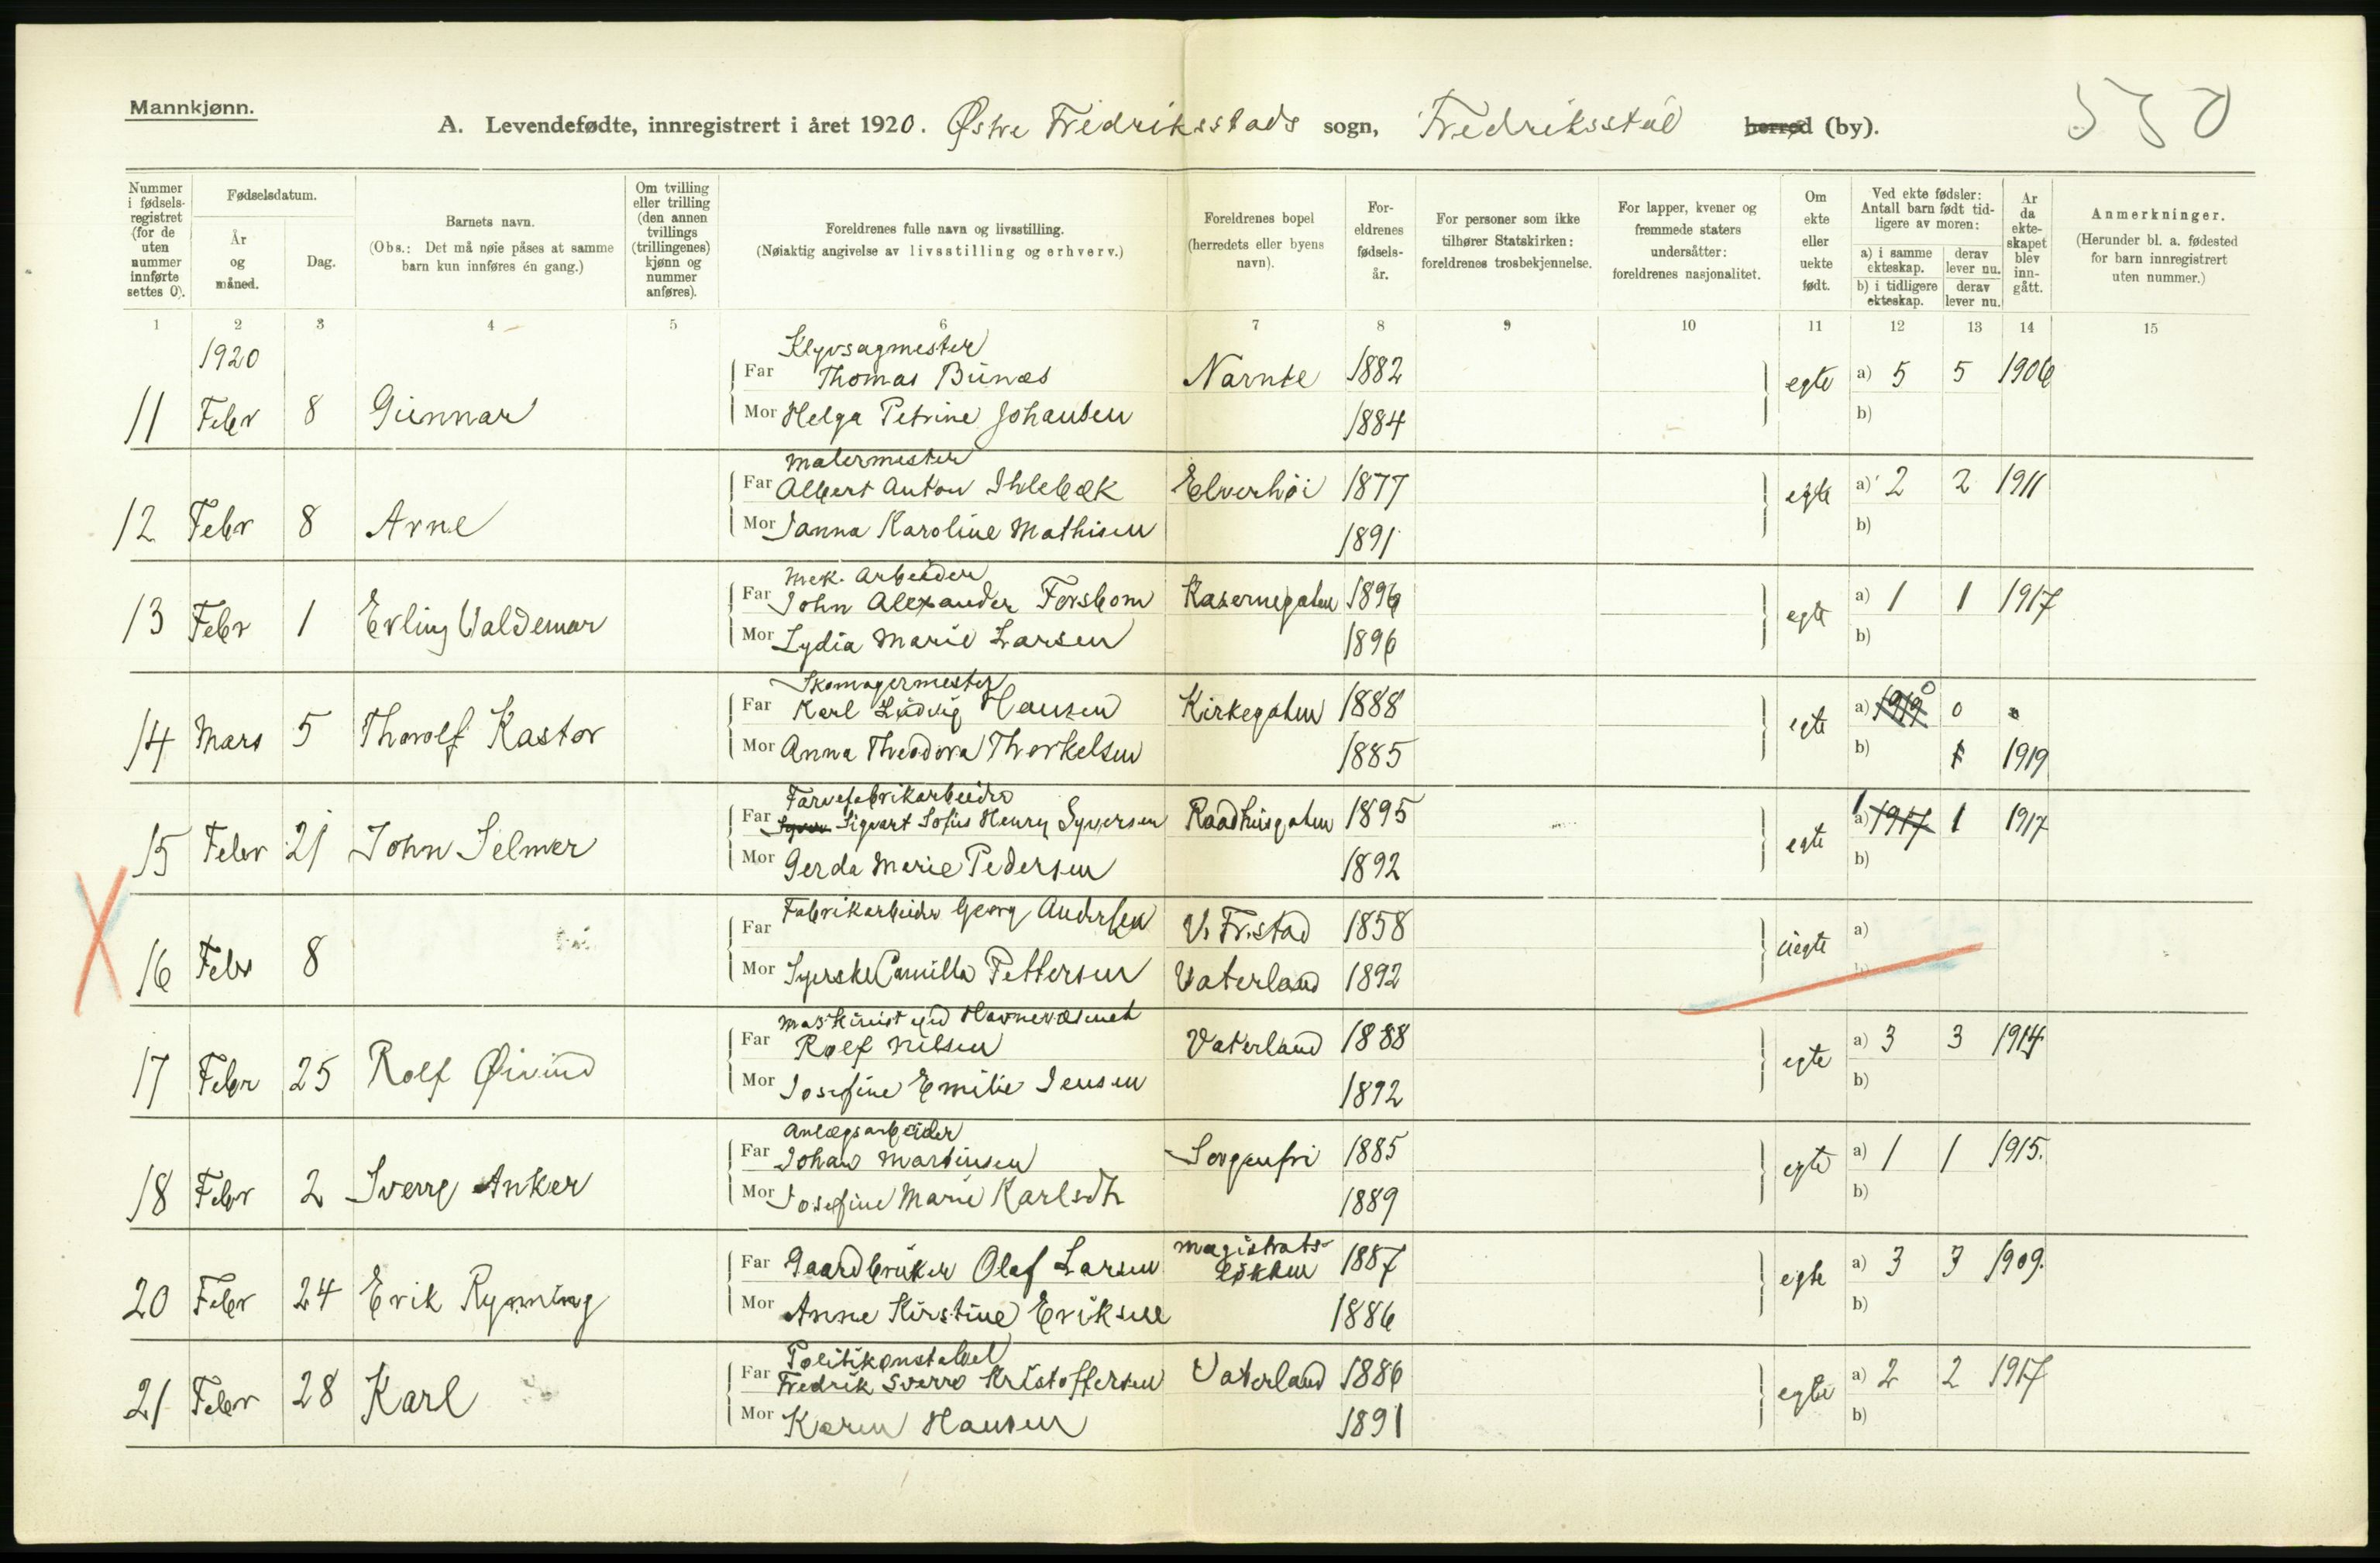 Mannkjønn.
A. Levendefødte, innregistrert i året 1920. Østre Fredriksstads sogn, Fredriksstad herred (by).
Nummer i fødselsregistret (for de uten nummer innførte settes 0).
Fødselsdatum.
År og måned.
Dag.
Barnets navn.
(Obs.: Det må nøie påses at samme barn kun innføres én gang.)
Om tvilling eller trilling (den annen tvillings (trillingenes) kjønn og nummer anføres).
Foreldrenes fulle navn og livsstilling.
(Nøiaktig angivelse av livsstilling og erhverv.)
Foreldrenes bopel (herredets eller byens navn).
Foreldrenes fødselsår.
For personer som ikke tilhører Statskirken: foreldrenes trosbekjennelse.
For lapper, kvener og fremmede staters undersåtter: foreldrenes nasjonalitet.
Om ekte eller uekte født.
Ved ekte fødsler: Antall barn født tidligere av moren:
a) i samme ekteskap. derav lever nu.
b) i tidligere ekteskap. derav lever nu.
År da ekteskapet blev inngått.
Anmerkninger.
(Herunder bl. a. fødested for barn innregistrert uten nummer.)
1 2 3 4 5 6 7 8 9 10 11 12 13 14 15
1920
Klyvsagmester
Far Thomas Bunæs Narnte 1882 egte a) 5 5 1906
11 Febr 8 Gunnar Mor Helga Petrine Johansen 1884 b)
Malermester
Far Albert Anton Ihlebæk Elverhöi 1877 egte a) 2 2 1911
12 Febr 8 Arne Mor Janna Karoline Mathisen 1891 b)
Mek. Arbeider
Far John Alexander Forsbom Kasernegaten 1896 egte a) 1 1 1917
13 Febr 1 Erling Valdemar Mor Lydia Marie Larsen 1896 b)
Skomagermester
Far Karl Ludvig Hansen Kirkegaten 1888 egte a) 1919 0 0
14 Mars 5 Thorolf Kastor Mor Anna Theodora Thorkelsen 1885 b) 1919
Farvefabrikarbeider
Far Syver Sigvart Sofus Henry Syversen Raadhusgaten 1895 egte 1 a) 1917 1 1917
15 Febr 21 John Selmer Mor Gerda Marie Pedersen 1892 b)
Fabrikarbeider Georg Andersen
Far V. Fr.stad 1858 uegte a)
16 Febr 8 Mor Syerske Camilla Pettersen Vaterland 1892 b)
Maskinist ved Havnevæsenet
Far Rolf Nilsen Vaterland 1888 egte a) 3 3 1914
17 Febr 25 Rolf Øivind Mor Josefine Emilie Jensen 1892 b)
Anlægsarbeider
Far Johan Martinsen Sorgenfri 1885 egte a) 1 1 1915.
18 Febr 2 Sverre Anker Mor Josefine Marie Karlsdt 1889 b)
Far Gaardbruker Olaf Larsen Magistratsløkken 1887 egte a) 3 3 1909.
20 Febr 24 Erik Rynning Mor Anne Kirstine Eriksen 1886 b)
Politikonstabel
Far Fredrik Sverre Kristoffersen Vaterland 1886 egte a) 2 2 1917
21 Febr 28 Karl Mor Karen Hansen 1891 b)